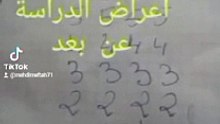 أعراض الدراسة
عن بعد
4 4
3 3 3 3
2 2 2 2
TikTok
@mahdimeftah71